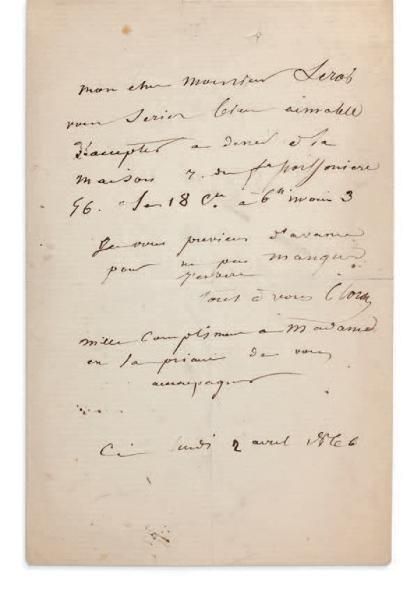 mon cher monsieur Lerob
vous seriez bien aimable
d'accepter a diner à la
maison r. du f. poissoniere
96. le 18 Ct. à 6h moin 3
Je vous previens d'avance
pour ne pas manquer
tout à vous
mille Compliment a Madame
en la priant de vous
accompagner
Ce lundi 2 avril 1866